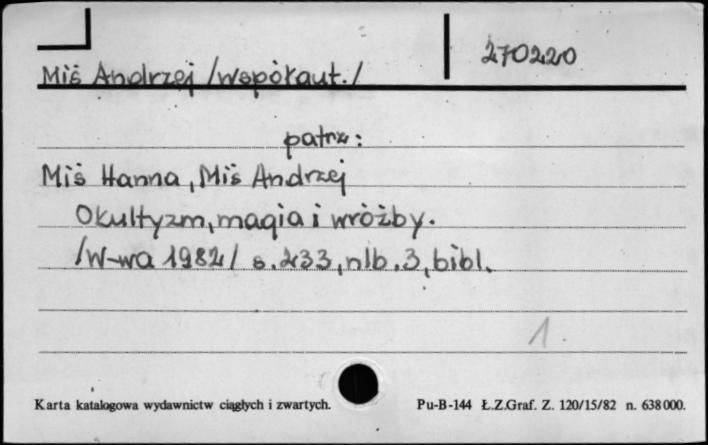 270220
Miś Andrzej /współaut./
patrz:
Miś Hanna, Miś Andrzej
Okultyzm, magia i wróżby.
/W-wa 1982/ s. 233, nlb. 3, bibl.
1.
Karta katalogowa wydawnictw ciągłych i zwartych. Pu-B-144 Ł.Z.Graf. Z. 120/15/82 n. 638000.